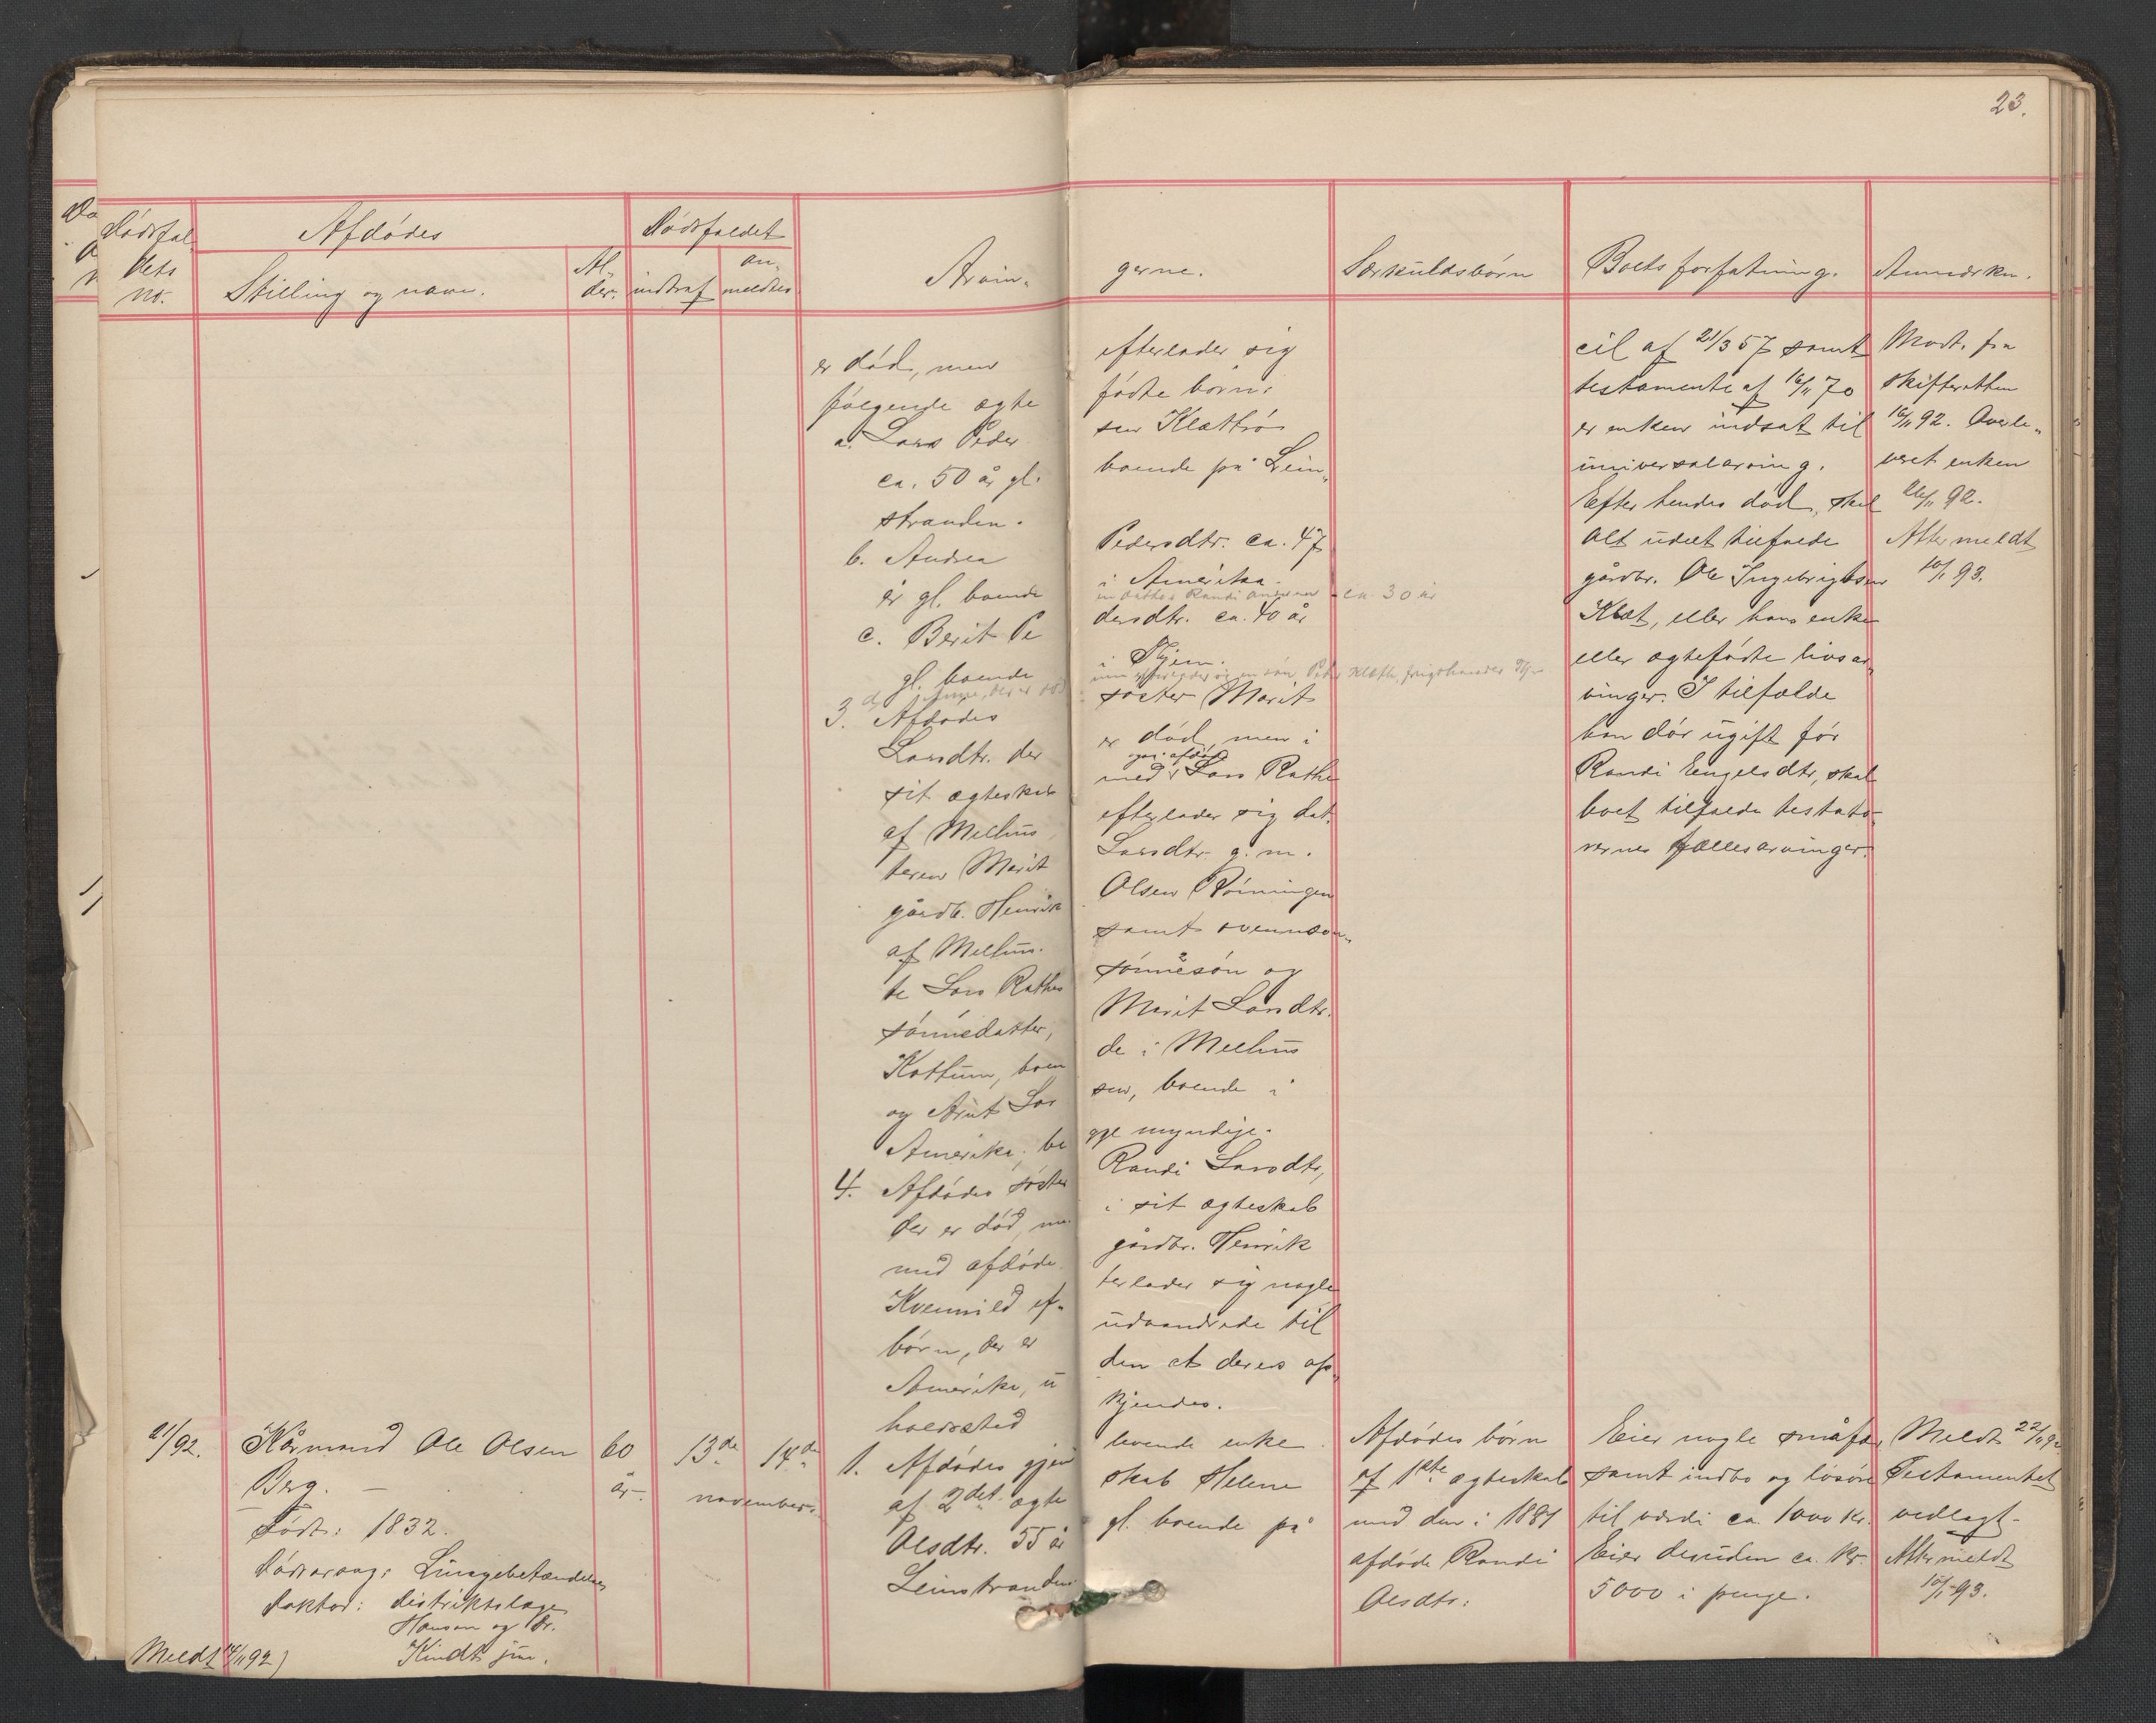 23.
Dødsfal-
dets
no.
Afdødes
Stilling og navn.
Al-
der.
Dødsfaldet
indtraf
an-
meldtes
Arvin-
gerne.
Særkuldsbørn
Boets forfatning.
Anmærkn.
er død, men efterlader sig
følgende ægte fødte børn:
a. Lars Peder sen Klættrø
ca. 50 år gl. boende på Lein-
stranden.
b. Andrea Pedersdtr. ca. 47
år gl. boende i Amerika.
en datter Randi ca. 30 år
c. Berit Pe dersdtr. ca. 40 år
gl. boende i Thjem.
3. Afdødes søster Marit
Larsdtr. der er død, men i
sit ægteskab med også afdøde Lars Rathe
af Melhus efterlader sig dat-
teren Marit Larsdtr. g. m.
gårdb. Henrik Olsen Rønningen
af Melhus. samt svennsøn-
te Lars Rathes sønnesøn og
sønnedatter, Marit Larsdtr.
Kattum, boen de i Melhus
og Arnt Lar sen, boende i
Amerika; be gge myndige.
4. Afdødes søster Randi Larsdtr,
der er død, me i sit ægteskab
med afdøde gårdbr. Henrik
Kvennild ef- terlader sig nogle
børn, der er udvandrede til
Amerika, u den at deres op-
holdssted kjendes.
cil af 21/3 57 samt
testamente af 16/11 70
er enken indsat til
universalarving.
Efter hendes død, skal
Alt udelt tilfalde
gårdbr. Ole Ingebrigtsen
Klæt, eller hans enke
eller ægtefødte livsar-
vinger. I tilfælde
han dør ugift før
Randi Engelsdtr, skal
boet tilfalde testato-
rernes fællesarvinger.
Modt. fra
skifteretten
16/11 92. Overle-
veret enken
26/11 92.
Attermeldt
10/1 93.
21/92.
Kårmand Ole Olsen
Berg. —
Født: 1832.
Dødsårsag: Lungebetændelse
Doktor: distriktslæge
Hansen og Dr.
Kindt jun.
Meldt 14/11 92)
60
år.
13de
14de
november.
1. Afdødes gjen levende enke
af 2det ægte skab Helene
Olsdtr. 55 år gl. boende på
Leinstranden.
Afdødes børn
af 1ste ægteskab
med den i 1881
afdøde Randi
Olsdtr:
Eier nogle småfær
samt indbo og løsøre
til værdi ca 1000 Kr.
Eier desuden ca. Kr.
5000 i penge.
Meldt 22/11 92
Testamentet
vedlagt.
Attermeldt
10/1 93.